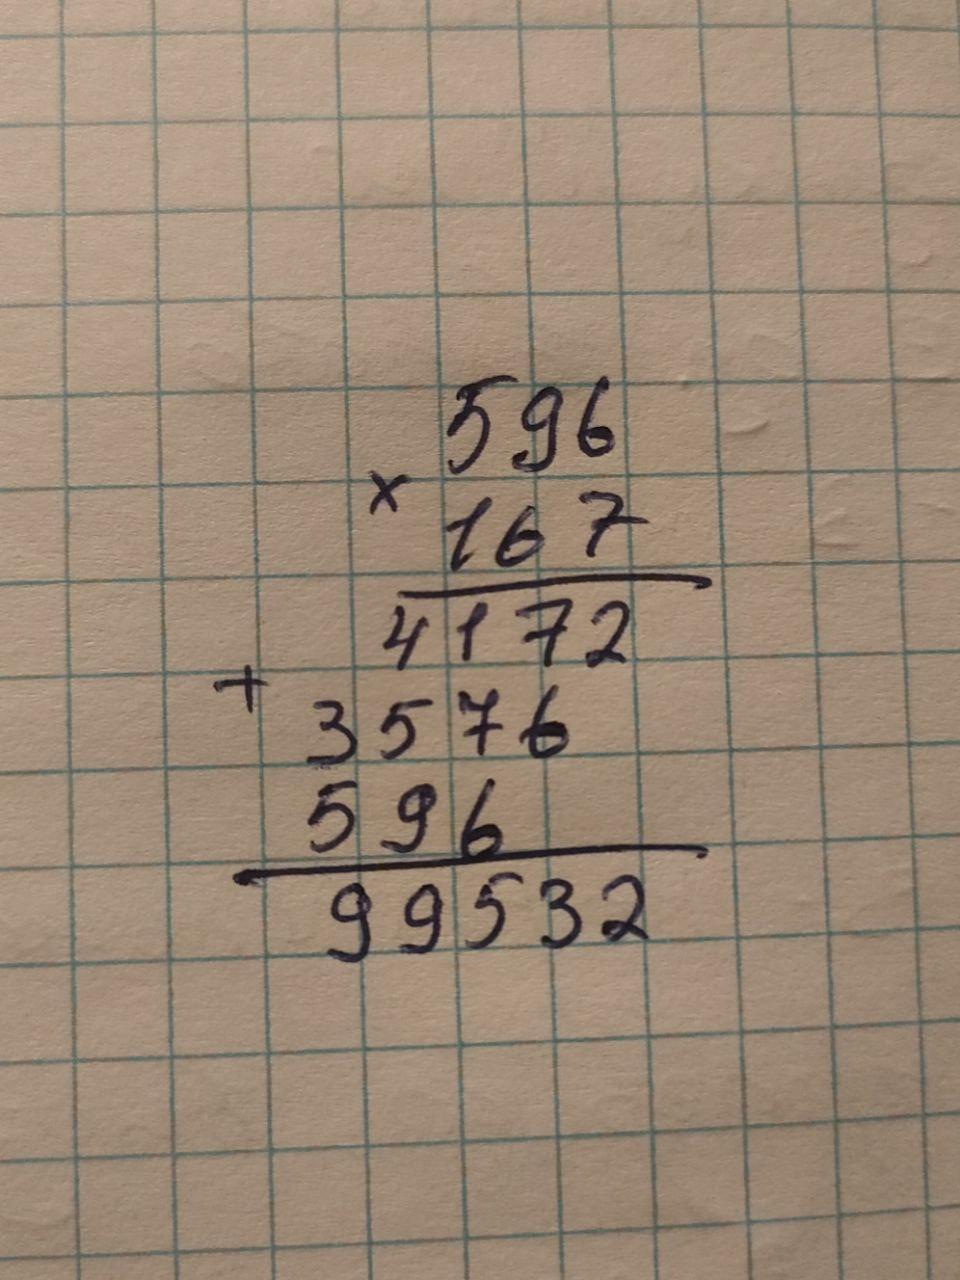 596
×
167
4172
+
3576
596
99532